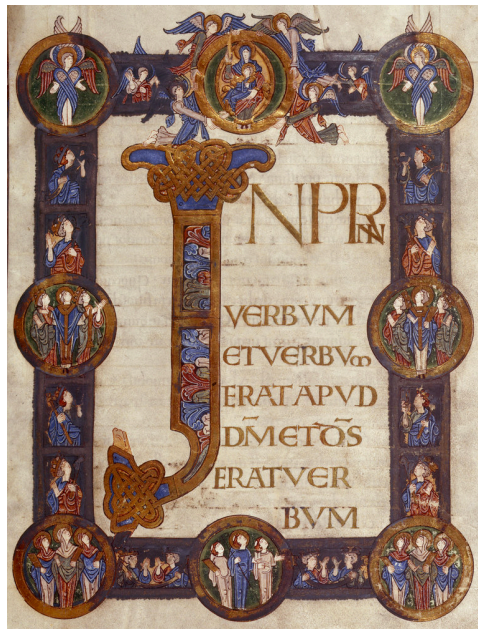 IN PRIN
VERBVM
ET VERBVM
ERAT APVD
DM̄ ET D̄S
ERAT VER
BVM